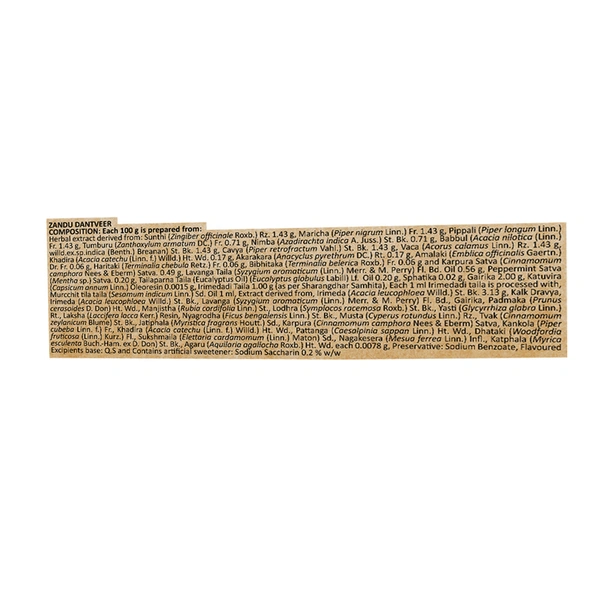 ZANDU DANTVEER
COMPOSITION: Each 100 g is prepared from:
Herbal extract derived from: Sunthi (Zingiber officinale Roxb.) Rz. 1.43 g, Maricha (Piper nigrum Linn.) Fr. 1.43 g, Pippali (Piper longum Linn.)
Fr. 1.43 g, Tumburu (Zanthoxylum armatum DC.) Fr. 0.71 g, Nimba (Azadirachta indica A. Juss.) St. Bk. 0.71 g, Babbul (Acacia nilotica (Linn.)
willd.ex.sp.indica (Benth.) Breanan) St. Bk. 1.43 g, Cavya (Piper retrofractum Vahl.) St. Bk. 1.43 g, Vaca (Acorus calamus Linn.) Rz. 1.43 g,
Khadira (Acacia catechu (Linn. f.) Willd.) Ht. Wd. 0.17 g, Akarakara (Anacyclus pyrethrum DC.) Rt. 0.17 g, Amalaki (Emblica officinalis Gaertn.)
Dr. Fr. 0.06 g, Haritaki (Terminalia chebula Retz.) Fr. 0.06 g, Bibhitaka (Terminalia belerica Roxb.) Fr. 0.06 g and Karpura Satva (Cinnamomum
camphora Nees & Eberm) Satva. 0.49 g, Lavanga Taila (Syzygium aromaticum (Linn.) Merr. & M. Perry) Fl. Bd. Oil 0.56 g, Peppermint Satva
(Mentha sp.) Satva. 0.20 g, Tailaparna Taila (Eucalyptus Oil) (Eucalyptus globulus Labill) Lf. Oil 0.20 g, Sphatika 0.02 g, Gairika 2.00 g, Katuvira
(Capsicum annum Linn.) Oleoresin 0.0015 g, Irimedadi Taila 1.00 g (as per Sharangdhar Samhita), Each 1 ml Irimedadi taila is processed with,
Murcchit tila taila (Sesamum indicum Linn.) Sd. Oil 1 ml, Extract derived from, Irimeda (Acacia leucophloea Willd.) St. Bk. 3.13 g, Kalk Dravya,
Irimeda (Acacia leucophloea Willd.) St. Bk., Lavanga (Syzygium aromaticum (Linn.) Merr. & M. Perry) Fl. Bd., Gairika, Padmaka (Prunus
cerasoides D. Don) Ht. Wd., Manjistha (Rubia cordifolia Linn.) St., Lodhra (Symplocos racemosa Roxb.) St. Bk., Yasti (Glycyrrhiza glabra Linn.)
Rt., Laksha (Laccifera lacca Kerr.) Resin, Nyagrodha (Ficus bengalensis Linn.) St. Bk., Musta (Cyperus rotundus Linn.) Rz., Tvak (Cinnamomum
zeylanicum Blume) St. Bk., Jatiphala (Myristica fragrans Houtt.) Sd., Karpura (Cinnamomum camphora Nees & Eberm) Satva, Kankola (Piper
cubeba Linn. f.) Fr., Khadira (Acacia catechu (Linn. f.) Willd.) Ht. Wd., Pattanga (Caesalpinia sappan Linn.) Ht. Wd., Dhataki (Woodfordia
fruticosa (Linn.) Kurz.) Fl., Sukshmaila (Elettaria cardamomum (Linn.) Maton) Sd., Nagakesera (Mesua ferrea Linn.) Infl., Katphala (Myrica
esculenta Buch.-Ham. ex D. Don) St. Bk., Agaru (Aquilaria agallocha Roxb.) Ht. Wd. each 0.0078 g, Preservative: Sodium Benzoate, Flavoured
Excipients base: Q.S and Contains artificial sweetener: Sodium Saccharin 0.2 % w/w